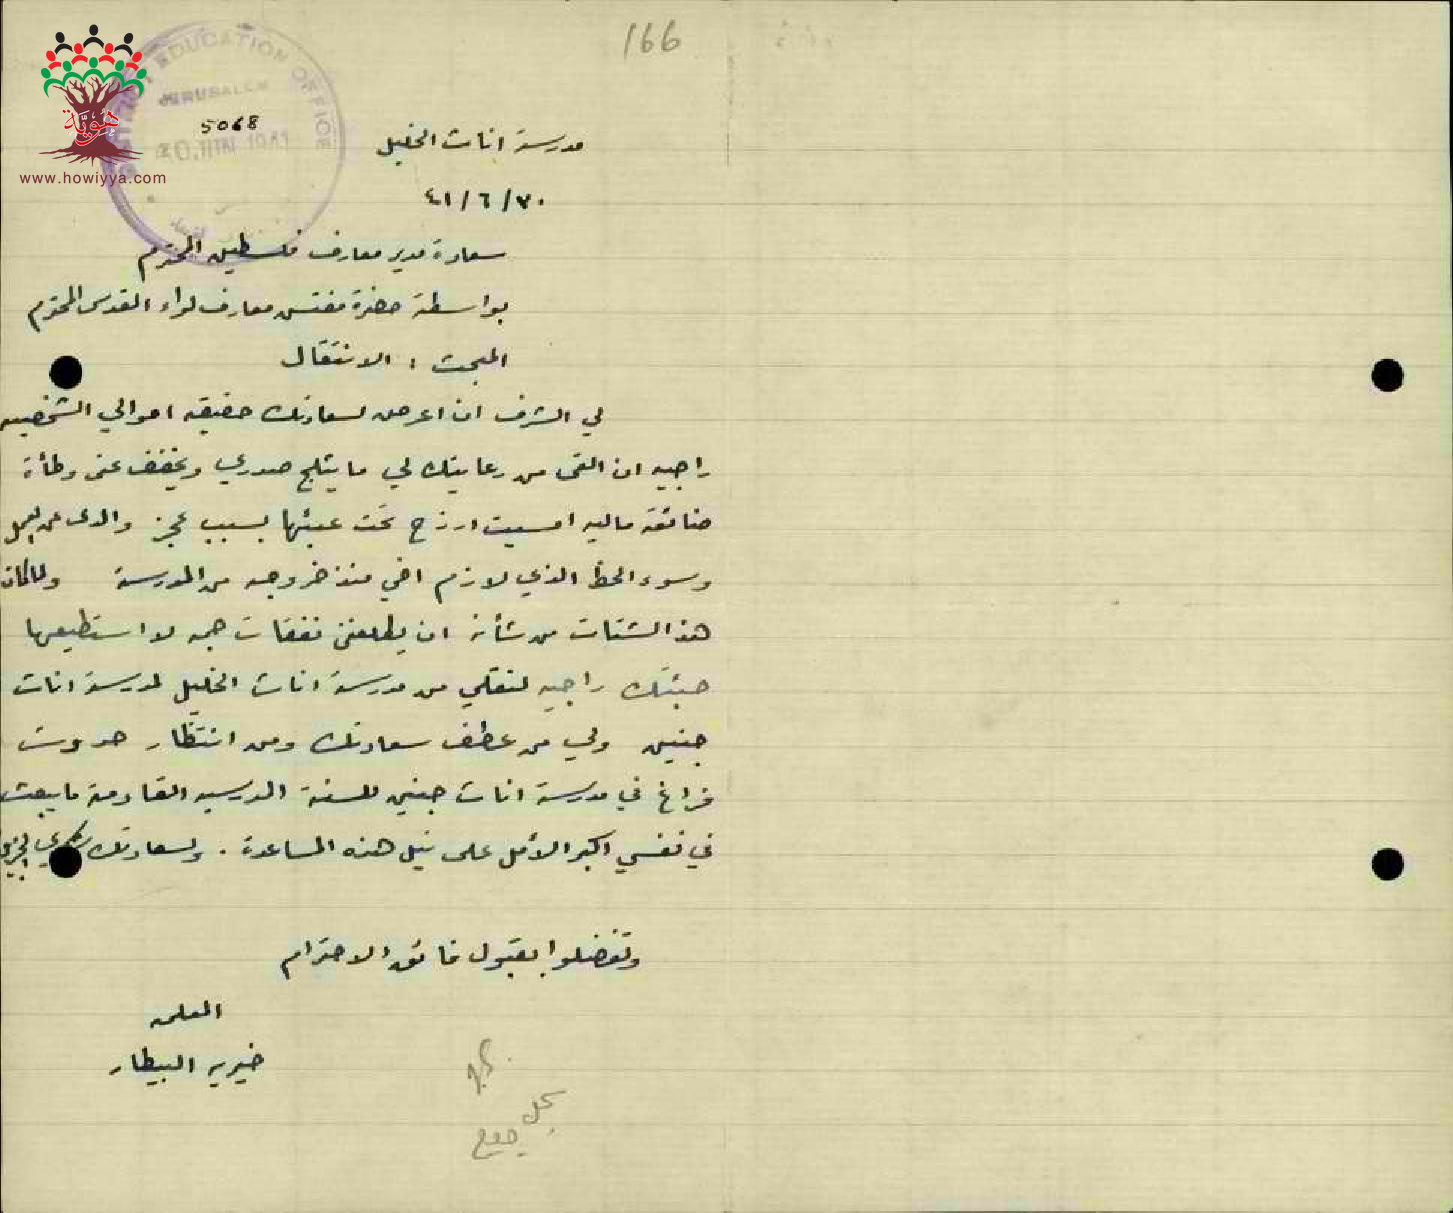 166
EDUCATION OFFICE
JERUSALEM
5068
هوية
www.howiyya.com
مدرسة اناث الخليل
٤١/٦/٢٠
سعادة مدير معارف فلسطين المحترم
بواسطة حضرة مفتش معارف لواء القدس المحترم
المبحث : الانتقال
لي الشرف ان اعرض لسعادتك حقيقه احوالي الشخصيه
راجيه ان القى من رعايتك لي ما يثلج صدري ويخفف عني وطأة
ضائقة ماليه امسيت ارزح تحت عبئها بسبب عجز والدي عن العمل
وسوء الحظ الذي لازم اخي منذ خروجه من المدرسة ولما كان
هذا الشتات من شأنه ان يكلفني نفقات جمه لا استطيعها
جئتك راجيه لنقلي من مدرسة اناث الخليل لمدرسة اناث
جنين ولي من عطف سعادتك ومن انتظار حدوث
فراغ في مدرسة اناث جنين للسنة الدرسيه القادمة ما يبعث
في نفسي اكبر الأمل على نيل هذه المساعدة . ولسعادتك شكري الجزيل
وتفضلوا بقبول فائق الاحترام
المعلمه
خيريه البيطار